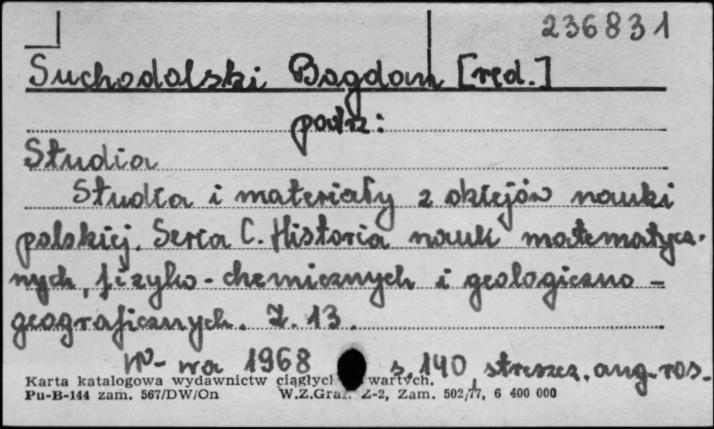 236831
Suchodolski Bogdan [red.]
patrz:
Studia
Studia i materiały z dziejów nauki
polskiej. Seria C. Historia nauk matematycz-
nych, fizyko-chemicznych i geologiczno-
geograficznych. Z. 13.
W-wa 1968 s. 140, streszcz. ang. ros.
Karta katalogowa wydawnictw ciągłych wartych.
Pu-B-144 zam. 567/DW/On W.Z.Graf. Z-2, Zam. 502/77, 6 400 000